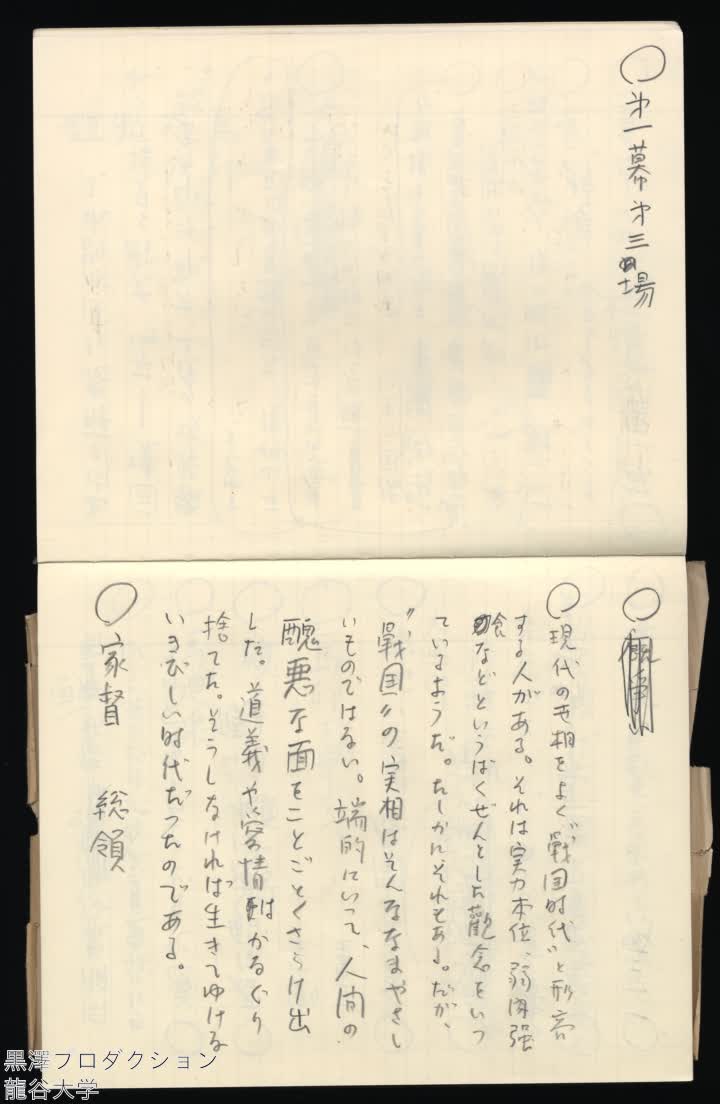 ○ 第一幕第三場
○
○ 現代の世相をよく〝戦国時代〟と形容
する人がある。それは実力本位、弱肉強
食などというばくぜんとした観念をいっ
ているようだ。たしかにそれもある。だが、
〝戦国〟の実相はそんななまやさし
いものではない。端的にいって、人間の
醜悪な面をことごとくさらけ出
した。道義や愛情はかなぐり
捨てた。そうしなければ生きてゆけな
いきびしい時代だったのである。
○ 家督 総領
黒澤プロダクション
龍谷大学